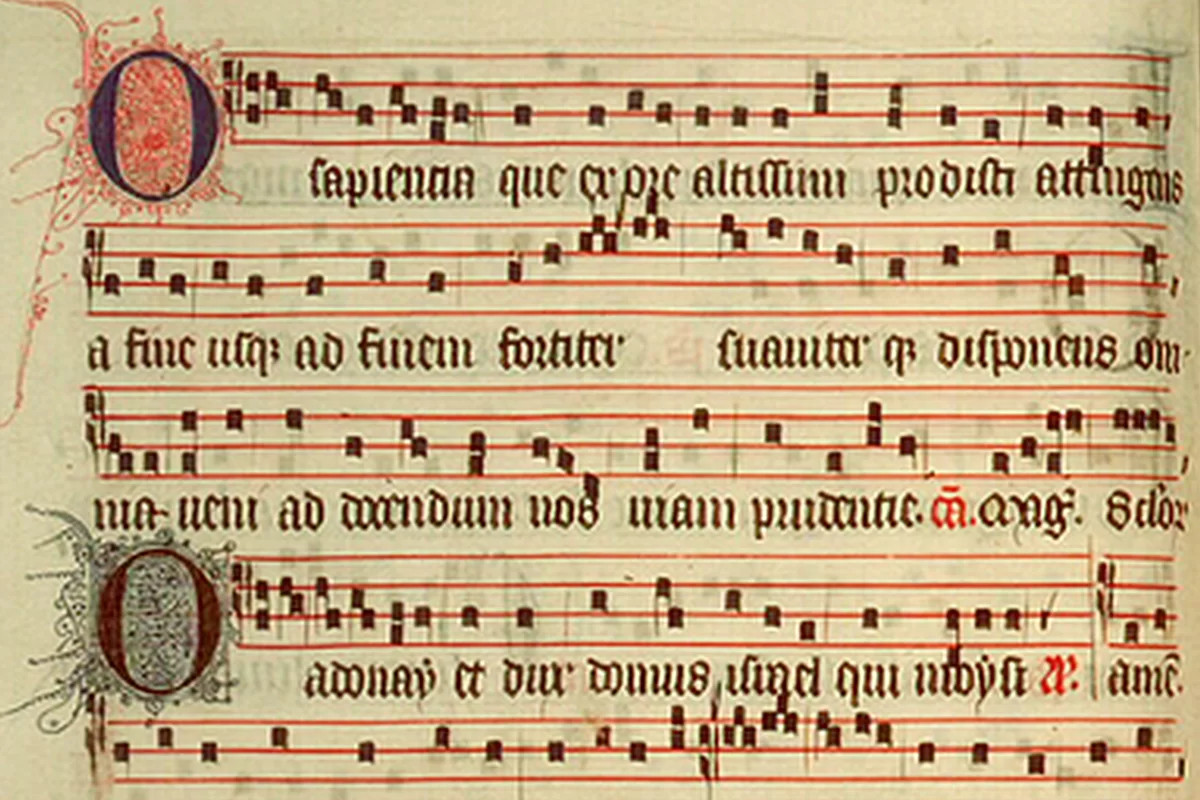 O sapientia que ex ore altissimi prodisti attingens
a fine usqꝫ ad finem fortiter suauiter qꝫ disponens om-
nia ueni ad docendum nos uiam prudentie. cā. Mag̃. Sclor
O adonaÿ et dux domus israel qui moÿsi R. amē.